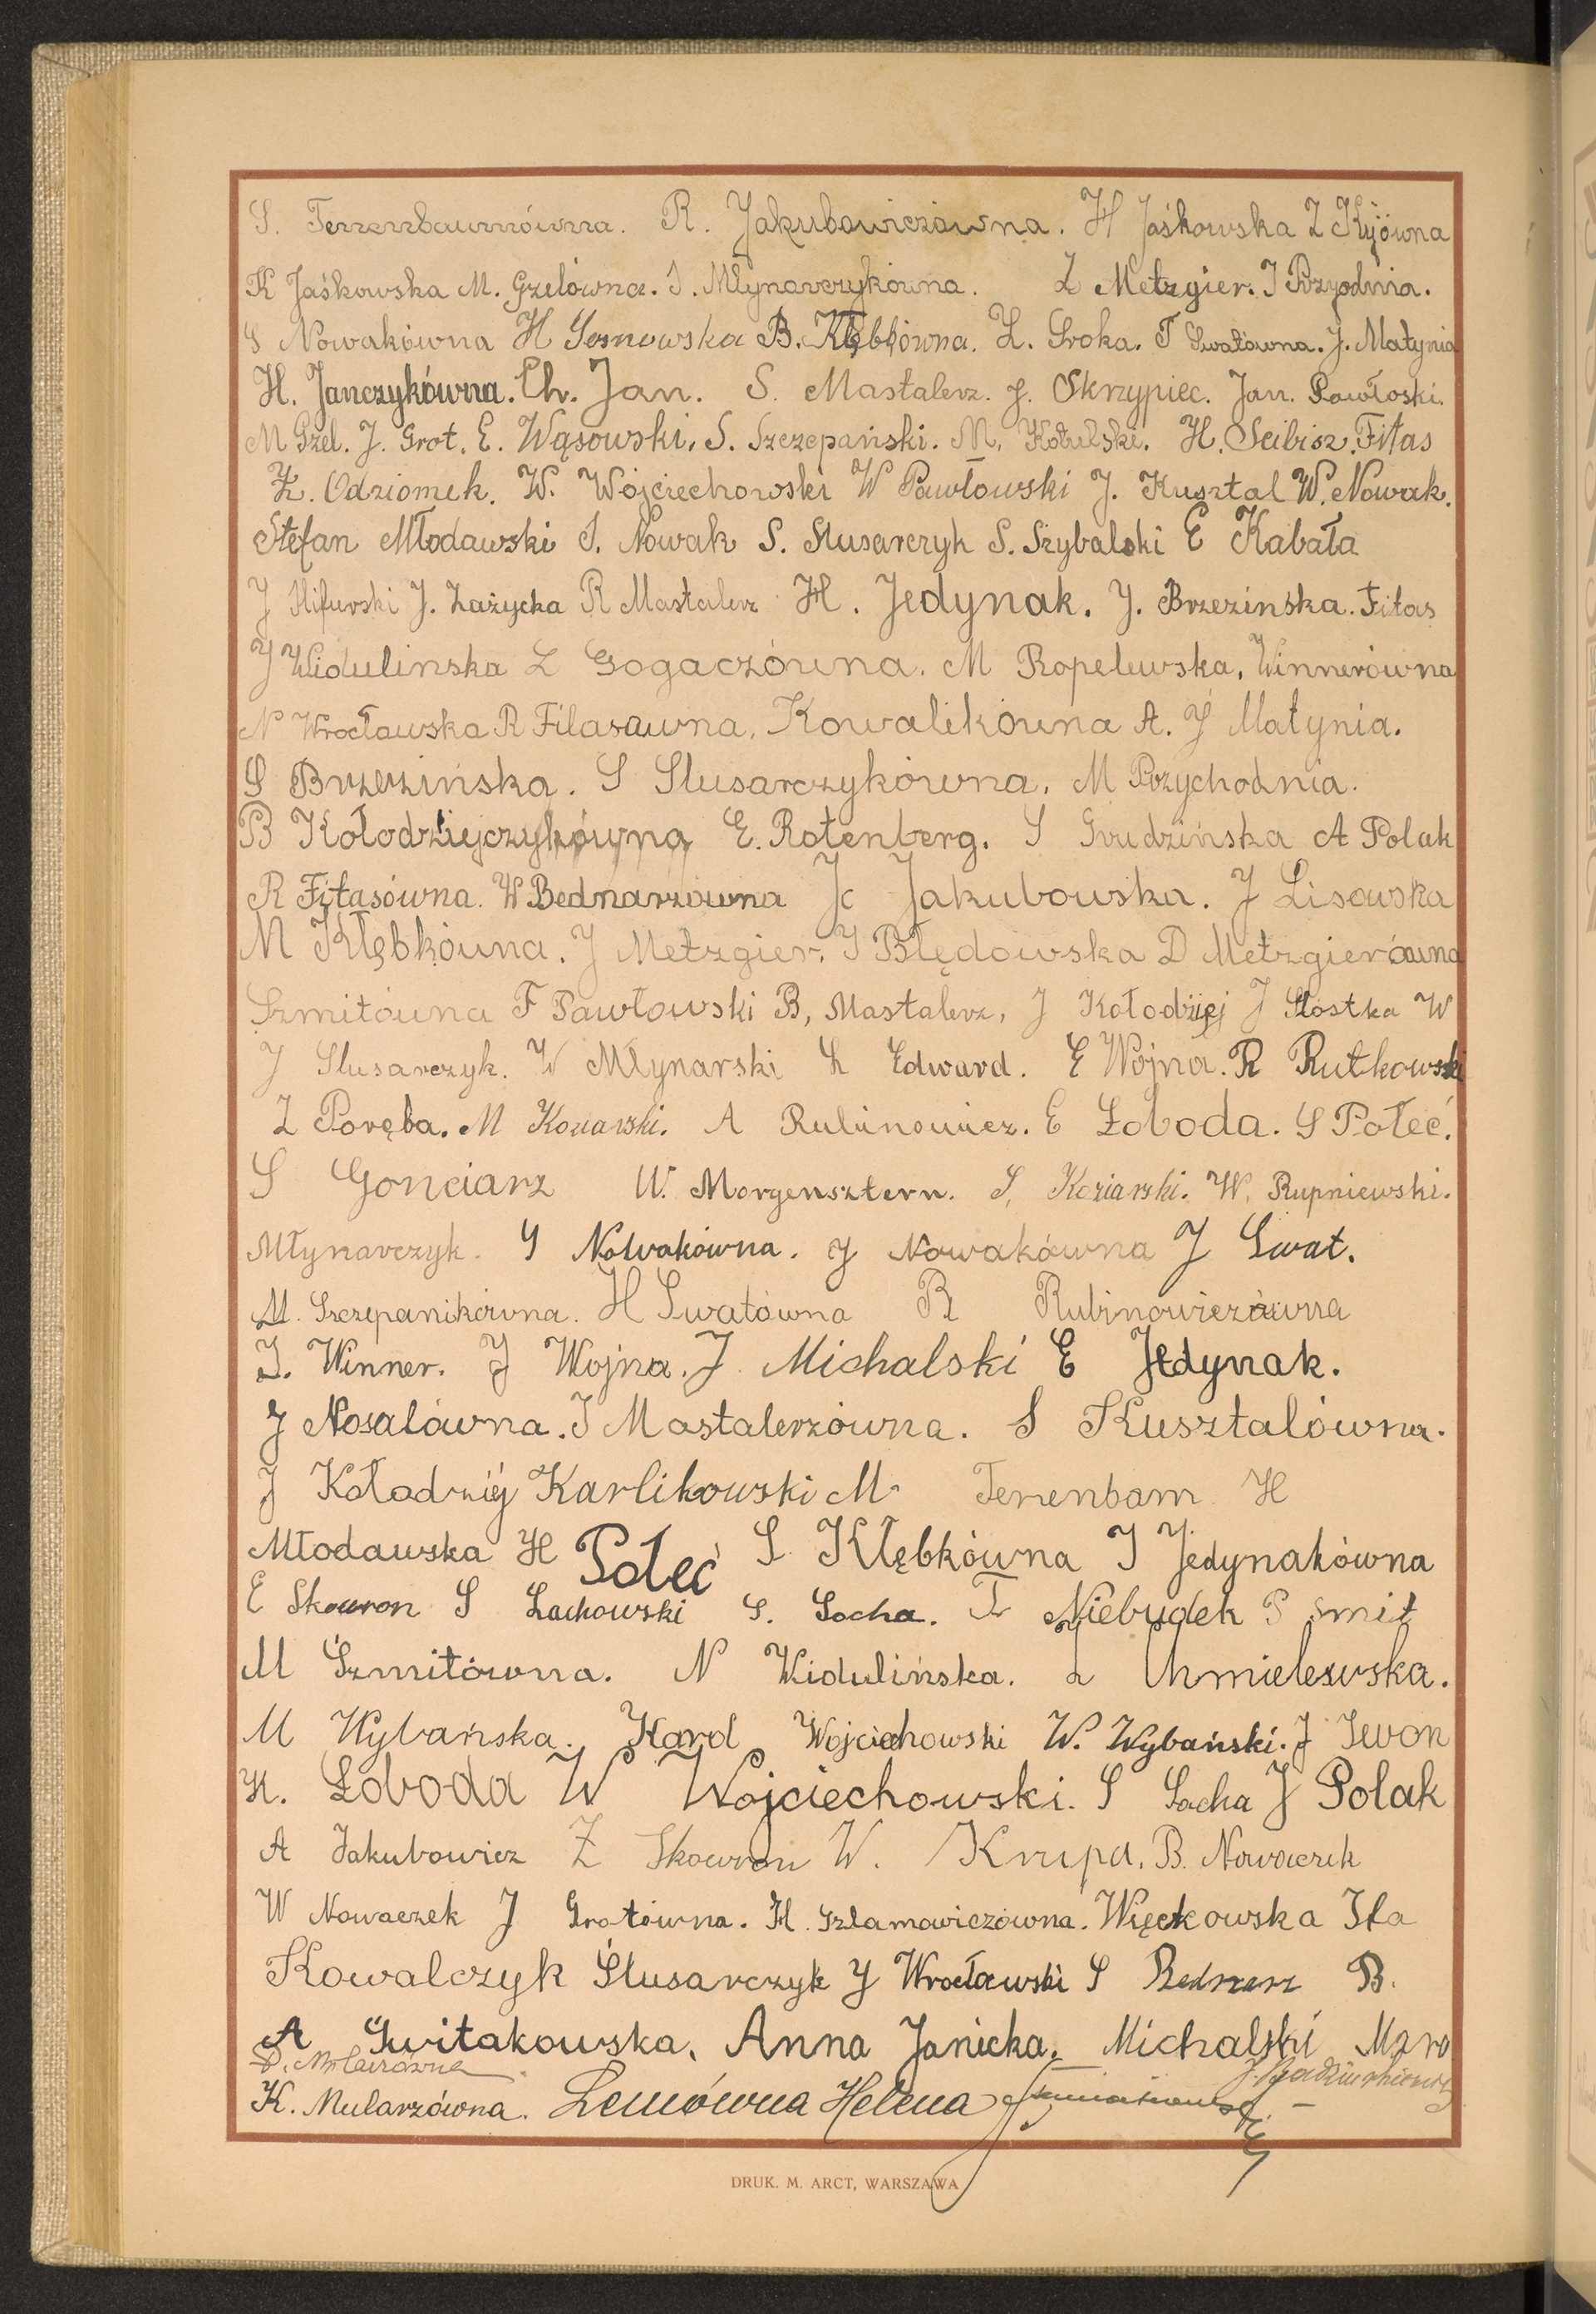 S. Tenenbaumówna. R. Jakubowiczówna. H Jaśkowska Z Kijówna
K Jaśkowska M. Grzelówna. S. Młynarczykówna. Z Metzgier. J Przyodnia.
S Nowakówna H Sosnowska B. Kłębkówna. Z. Sroka. T Swatówna. J. Matynia
H. Janczykówna. Ch. Jan. S. Mastalerz. J. Skrzypiec. Jan. Pawłoski.
M Gzel. J. Grot. E. Wąsowski. S. Szczepański. M. Kotulski. H. Seibisz. Fitas
Z. Odziomek. W. Wojciechowski W Pawłowski J. Kusztal W. Nowak.
Stefan Młodawski S. Nowak S. Slusarczyk S. Szybalski E Kabała
J J. Zażycka R Mastalerz H. Jedynak. J. Brzezinska. Fitas
J Widulinska Z Gogaczówna. M Ropelewska. Winnerówna
N Wrocławska R Filasawna. Kowalikówna A. J Matynia.
S Brzezińska. S Slusarczykówna. M Pozychodnia.
B Kołodziejczykówna E. Rotenberg. S Grudzińska A Polak
R Fitasówna. W Bednarzówna K Jakubowska. J Lisowska
M Kłębkówna. J Metzgier. J Błędowska D Metzgierówna
Szmitówna F Pawłowski B, Mastalerz, J Kołodziej J Słostka W
J Slusarczyk. W Młynarski Z Edward. E Wojna. R Rutkowski
Z Poręba. M Koziarski. A Rubinowicz. E Łoboda. S Połeć.
S Gonciarz W. Morgensztern. S. Koziarski. W. Rupniewski.
Młynarczyk. S Nowakówna. J Nowakówna J Swat.
M. Szczepanikówna. H Swatówna R Rubinowiczówna
I. Winner. J Wojna. J. Michalski E Jedynak.
J Nosalówna. J Mastalerzówna. S Kusztalówna.
J Kołodziéj Karlikowski M Tenenbam H
Młodawska H Połeć S Kłębkówna J Jedynakówna
E Skowron S Lachowski S. Socha. T Niebudek P Smit
M Szmitówna. N Widulińska. Z Chmielewska.
M Wybańska. Karol Wojciechowski W. Wybański. J Iwon
H. Łoboda W Wojciechowski. S Socha J Polak
A Jakubowicz Z Skowron W. Krupa. B. Nowaczek
W Nowaczek J Grotówna. H. Szlamowiczówna. Więckowska Ita
Kowalczyk Ślusarczyk J Wrocławski S Bednarz B.
A Świtakowska, Anna Janicka, Michalski Mar
D. Molarzówna
K. Mularzówna. Lemówna Helena
DRUK. M. ARCT, WARSZAWA